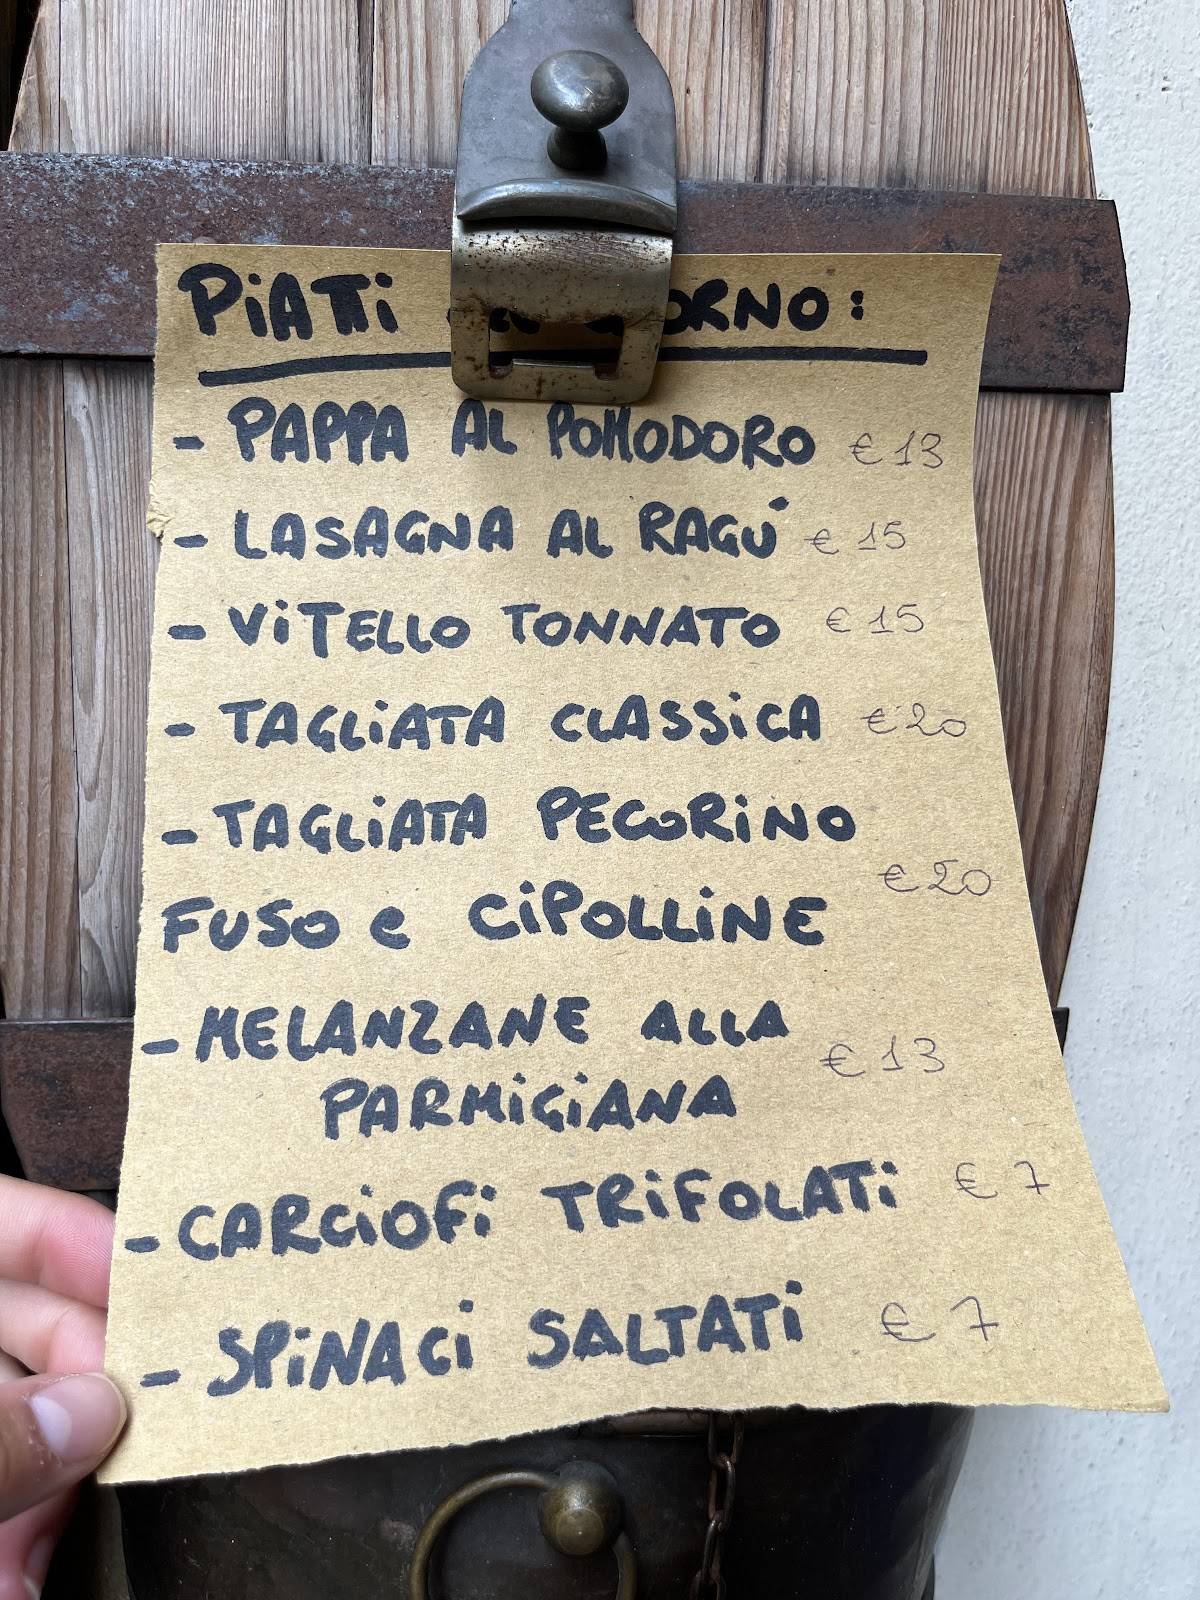 PiATTi GIORNO:
- PAPPA AL POMODORO € 13
- LASAGNA AL RAGÚ € 15
- ViTELLO TONNATO € 15
- TAGLiATA CLASSiCA € 20
- TAGLiATA PECORiNO
FUSO e CiPOLLiNE € 20
- MELANZANE ALLA
PARMiGiANA € 13
- CARCiOFi TRiFOLATi € 7
- SPiNACi SALTATi € 7